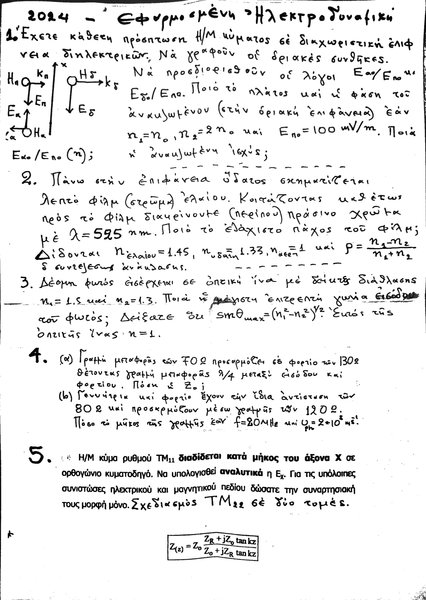 2024 - Εφαρμοσμένη Ηλεκτροδυναμική
1. Έχετε κάθετη πρόσπτωση Η/Μ κύματος σε διαχωριστική επιφ
νεια διηλεκτρικών. Να γραφούν οι οριακές συνθήκες.
Να προσδιορισθούν οι λόγοι Εαο/Επο και
Εδο/Επο. Ποιό το πλάτος και η φάση του
ανακλωμένου (στην οριακή επιφάνεια) εάν
n₁=n₀, n₂=2n₀ και Επο=100 mV/m. Ποιά
η ανακλωμένη ισχύς;
Ηπ κπ Ηδ κδ x
Επ Εδ
Ηα
Εαο/Επο (n);
2. Πάνω στην επιφάνεια ύδατος σχηματίζεται
λεπτό φίλμ (στρώμα) ελαίου. Κοιτάζοντας καθέτως
πρός το φίλμ διακρίνουμε (περίπου) πράσινο χρώμα
με λ=525 nm. Ποιό το ελάχιστο πάχος του φίλμ;
Δίδονται nελαίου=1.45, nυδατ=1.33, nαερ=1 και ρ=n₁-n₂/n₁+n₂
ο συντελεστής ανάκλασης.
3. Δέσμη φωτός εισέρχεται σε οπτική ίνα με δείκτες διάθλασης
n₁=1.5 και n₂=1.3. Ποιά η μέγιστη επιτρεπτή γωνία εισόδου
του φωτός; Δείξατε ότι sinθmax=(n₁²-n₂²)^1/2 Εκτός της
οπτικής ίνας n=1.
4. (α) Γραμμή μεταφοράς των 70Ω προσαρμόζει σε φορτίο των 130Ω
θέτοντας γραμμή μεταφοράς λ/4 μεταξύ εισόδου και
φορτίου. Πόση η Zο;
(b) Γεννήτρια και φορτίο έχουν την ίδια αντίσταση των
80Ω και προσαρμόζουν μέσω γραμμής των 120Ω.
Πόσο το μήκος της γραμμής εάν f=20MHz και Uph=2*10⁸ ms⁻¹.
5. Η/Μ κύμα ρυθμού ΤΜ₁₁ διαδίδεται κατά μήκος του άξονα Χ σε
ορθογώνιο κυματοδηγό. Να υπολογισθεί αναλυτικά η Εz. Για τις υπόλοιπες
συνιστώσες ηλεκτρικού και μαγνητικού πεδίου δώσατε την συναρτησιακή
τους μορφή μόνο. Σχεδιασμός ΤΜ₂₂ σε δύο τομές.
Z(z) = Z₀ Z_R + jZ₀ tan kz / Z₀ + jZ_R tan kz